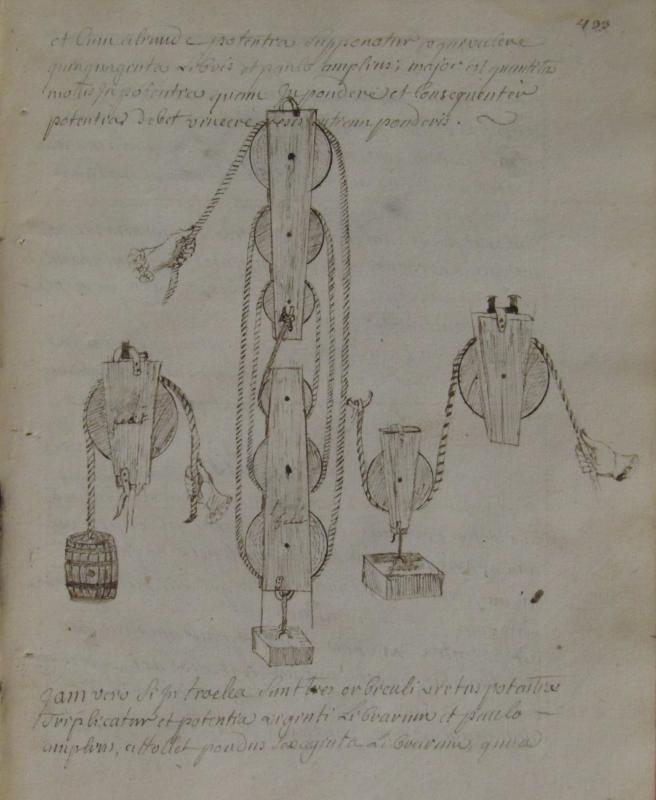 433
et Cum alrunde potentra supponatur æquevalere
quinquagenta Libris et paulo amplius; major est quantitas
motus In potentra quam In pondere et Consequenter
potentra debet vincere resistentram ponderis.
Jam vero Si In troclea Sunt tres orbeculi vretus potentra
Triplicatur et potentra vrgenti Librarum et paulo
amplius, attollet pondus sexagenta Librarum, quia